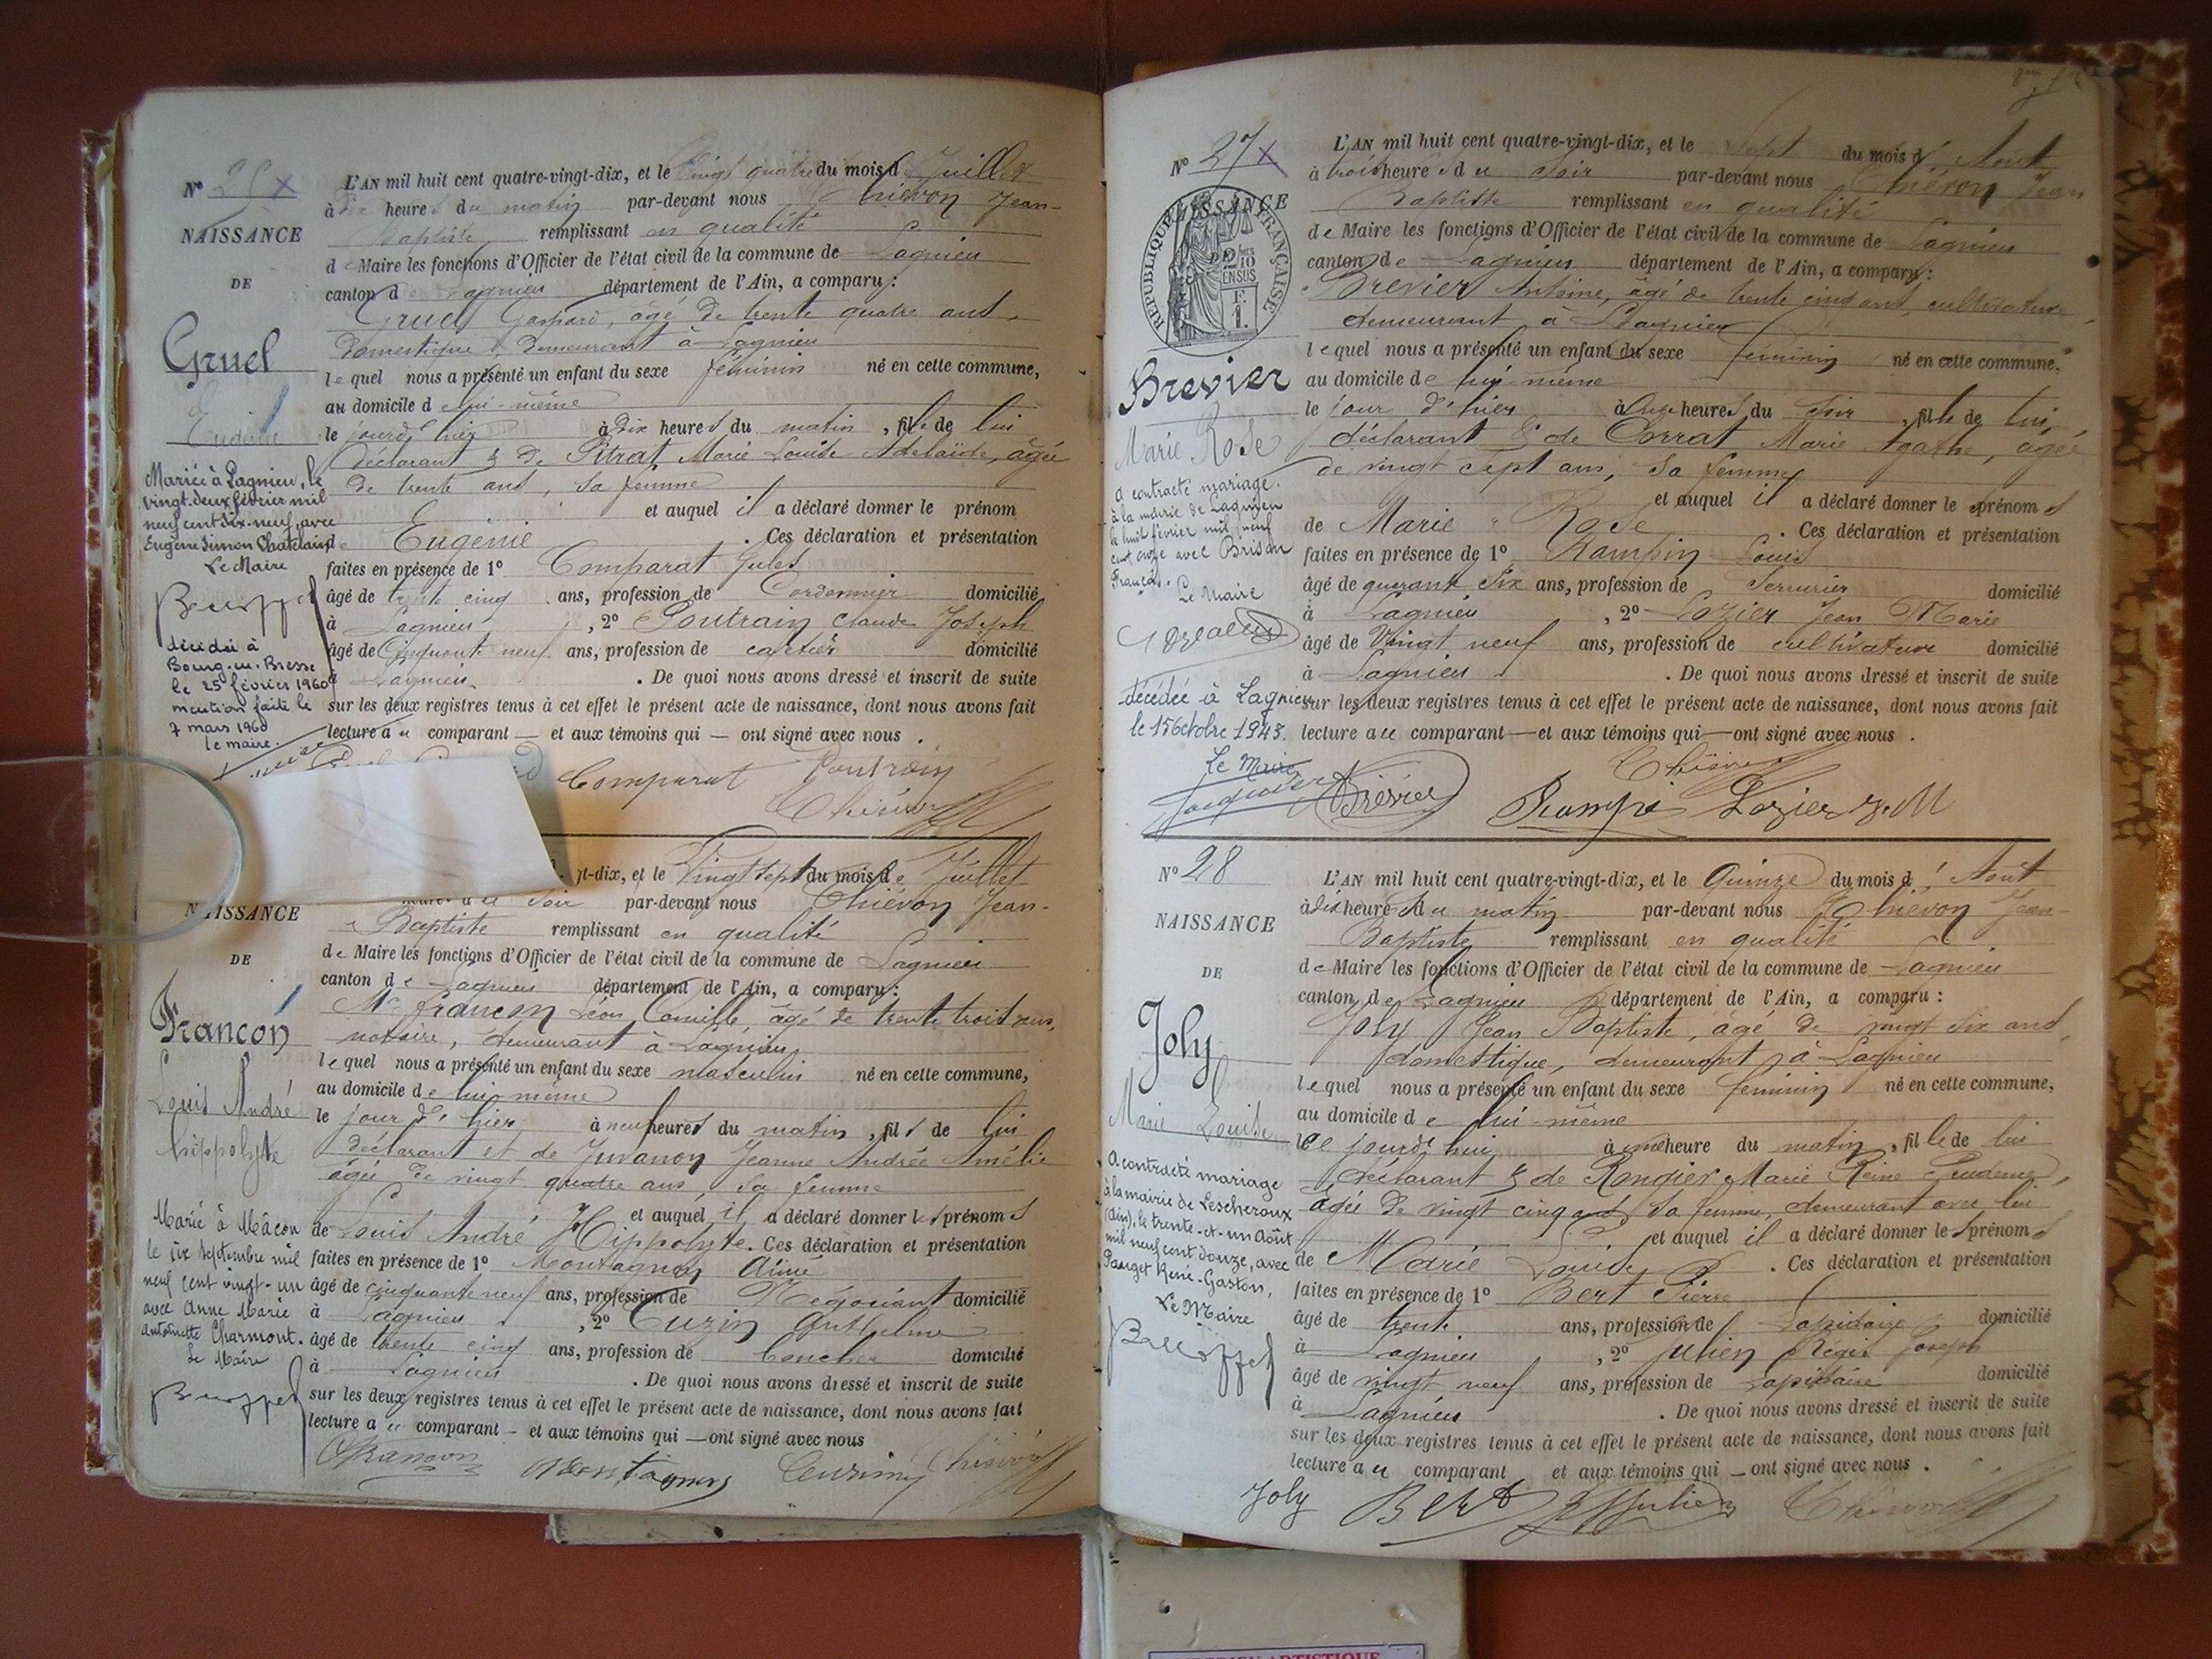 N° 25 x
NAISSANCE
DE
Gruel
Eugénie
Mariée à Lagnieu, le
vingt-deux février mil
neuf cent dix-neuf, avec
Eugène Simon Chatelain
Le Maire
décédée à
Bourg-en-Bresse
le 25 février 1960
mention faite le
7 mars 1960
le maire.
L'AN mil huit cent quatre-vingt-dix, et le Vingt quatre du mois de Juillet
à dix heures du matin par-devant nous Thiévon Jean-
Baptiste remplissant en qualité
de Maire les fonctions d'Officier de l'état civil de la commune de Lagnieu
canton de Lagnieu département de l'Ain, a comparu :
Gruel Gaspard, âgé de trente quatre ans,
domestique, demeurant à Lagnieu
lequel nous a présenté un enfant du sexe féminin né en cette commune,
au domicile de lui-même
le jour d'hier à dix heures du matin, fille de lui
déclarant & de Pitrat, Marie Louise Adelaïde, âgée
de trente ans, sa femme
et auquel il a déclaré donner le prénom
de Eugénie . Ces déclaration et présentation
faites en présence de 1° Comparat Jules
âgé de trente cinq ans, profession de Cordonnier domicilié
à Lagnieu , 2° Poutrain Claude Joseph
âgé de Cinquante neuf ans, profession de cafetier domicilié
à Lagnieu . De quoi nous avons dressé et inscrit de suite
sur les deux registres tenus à cet effet le présent acte de naissance, dont nous avons fait
lecture au comparant — et aux témoins qui — ont signé avec nous .
Comparat Poutrain
Thiévon
NAISSANCE
DE
Francon
Louis André
hippolyte
Marié à Mâcon
le six septembre mil
neuf cent vingt-un
avec Anne Marie
Antoinette Charmont.
Le Maire
gt-dix, et le Vingt sept du mois de Juillet
du soir par-devant nous Thiévon Jean-
Baptiste remplissant en qualité
de Maire les fonctions d'Officier de l'état civil de la commune de Lagnieu
canton de Lagnieu département de l'Ain, a comparu :
Mr Francon Léon Camille, âgé de trente trois ans,
notaire, demeurant à Lagnieu
lequel nous a présenté un enfant du sexe masculin né en cette commune,
au domicile de lui-même
le jour d'hier à neuf heures du matin, fils de lui
déclarant et de Juvanon Jeanne Andrée Amélie
âgée de vingt quatre ans, sa femme
et auquel il a déclaré donner les prénoms
de Louis André Hippolyte. Ces déclaration et présentation
faites en présence de 1° Montagnon Aimé
âgé de cinquante neuf ans, profession de Négociant domicilié
à Lagnieu , 2° Cuzin Anthelme
âgé de trente cinq ans, profession de boucher domicilié
à Lagnieu . De quoi nous avons dressé et inscrit de suite
sur les deux registres tenus à cet effet le présent acte de naissance, dont nous avons fait
lecture au comparant — et aux témoins qui — ont signé avec nous
Francon Montagnon Cuzin Thiévon
N° 27 x
NAISSANCE
RÉPUBLIQUE FRANÇAISE
Brevier
Marie Rose
a contracté mariage
à la mairie de Lagnieu
le huit février mil neuf
cent onze avec Brison
François.
Le Maire
décédée à Lagnieu
le 15 octobre 1945.
Le Maire
L'AN mil huit cent quatre-vingt-dix, et le Sept du mois d'Août
à trois heures du soir par-devant nous Thiévon Jean
Baptiste remplissant en qualité
de Maire les fonctions d'Officier de l'état civil de la commune de Lagnieu
canton de Lagnieu département de l'Ain, a comparu :
Brevier Antoine, âgé de trente cinq ans, cultivateur
demeurant à Lagnieu
lequel nous a présenté un enfant du sexe féminin né en cette commune,
au domicile de lui-même
le jour d'hier à onze heures du soir, fille de lui,
déclarant & de Corrat Marie Agathe, âgée
de vingt sept ans, sa femme
et auquel il a déclaré donner le prénoms
de Marie Rose . Ces déclaration et présentation
faites en présence de 1° Rampin Louis
âgé de quarante six ans, profession de serrurier domicilié
à Lagnieu , 2° Lozier Jean Marie
âgé de Vingt neuf ans, profession de cultivateur domicilié
à Lagnieu . De quoi nous avons dressé et inscrit de suite
sur les deux registres tenus à cet effet le présent acte de naissance, dont nous avons fait
lecture au comparant — et aux témoins qui — ont signé avec nous .
Thiévon
Brévier Rampi Lozier J. M
N° 28
NAISSANCE
DE
Joly
Marie Louise
A contracté mariage
à la mairie de Lescheroux
(Ain), le trente-et-un Août
mil neuf cent douze, avec
Pauget René-Gaston,
Le Maire
L'AN mil huit cent quatre-vingt-dix, et le Quinze du mois d'Août
à dix heures du matin par-devant nous Thiévon Jean
Baptiste remplissant en qualité
de Maire les fonctions d'Officier de l'état civil de la commune de Lagnieu
canton de Lagnieu département de l'Ain, a comparu :
Joly Jean Baptiste, âgé de vingt six ans,
domestique, demeurant à Lagnieu
lequel nous a présenté un enfant du sexe féminin né en cette commune,
au domicile de lui-même
le jourd'hui à une heure du matin, fille de lui
déclarant & de Rongier Marie Reine Prudence,
âgée de vingt cinq ans, sa femme, demeurant avec lui
et auquel il a déclaré donner les prénoms
de Marie Louise . Ces déclaration et présentation
faites en présence de 1° Bert Pierre
âgé de trente ans, profession de Lapidaire domicilié
à Lagnieu , 2° Julien Régis Joseph
âgé de vingt neuf ans, profession de Lapidaire domicilié
à Lagnieu . De quoi nous avons dressé et inscrit de suite
sur les deux registres tenus à cet effet le présent acte de naissance, dont nous avons fait
lecture au comparant et aux témoins qui — ont signé avec nous .
Joly Bert Julien Thiévon
ARTISTIQUE